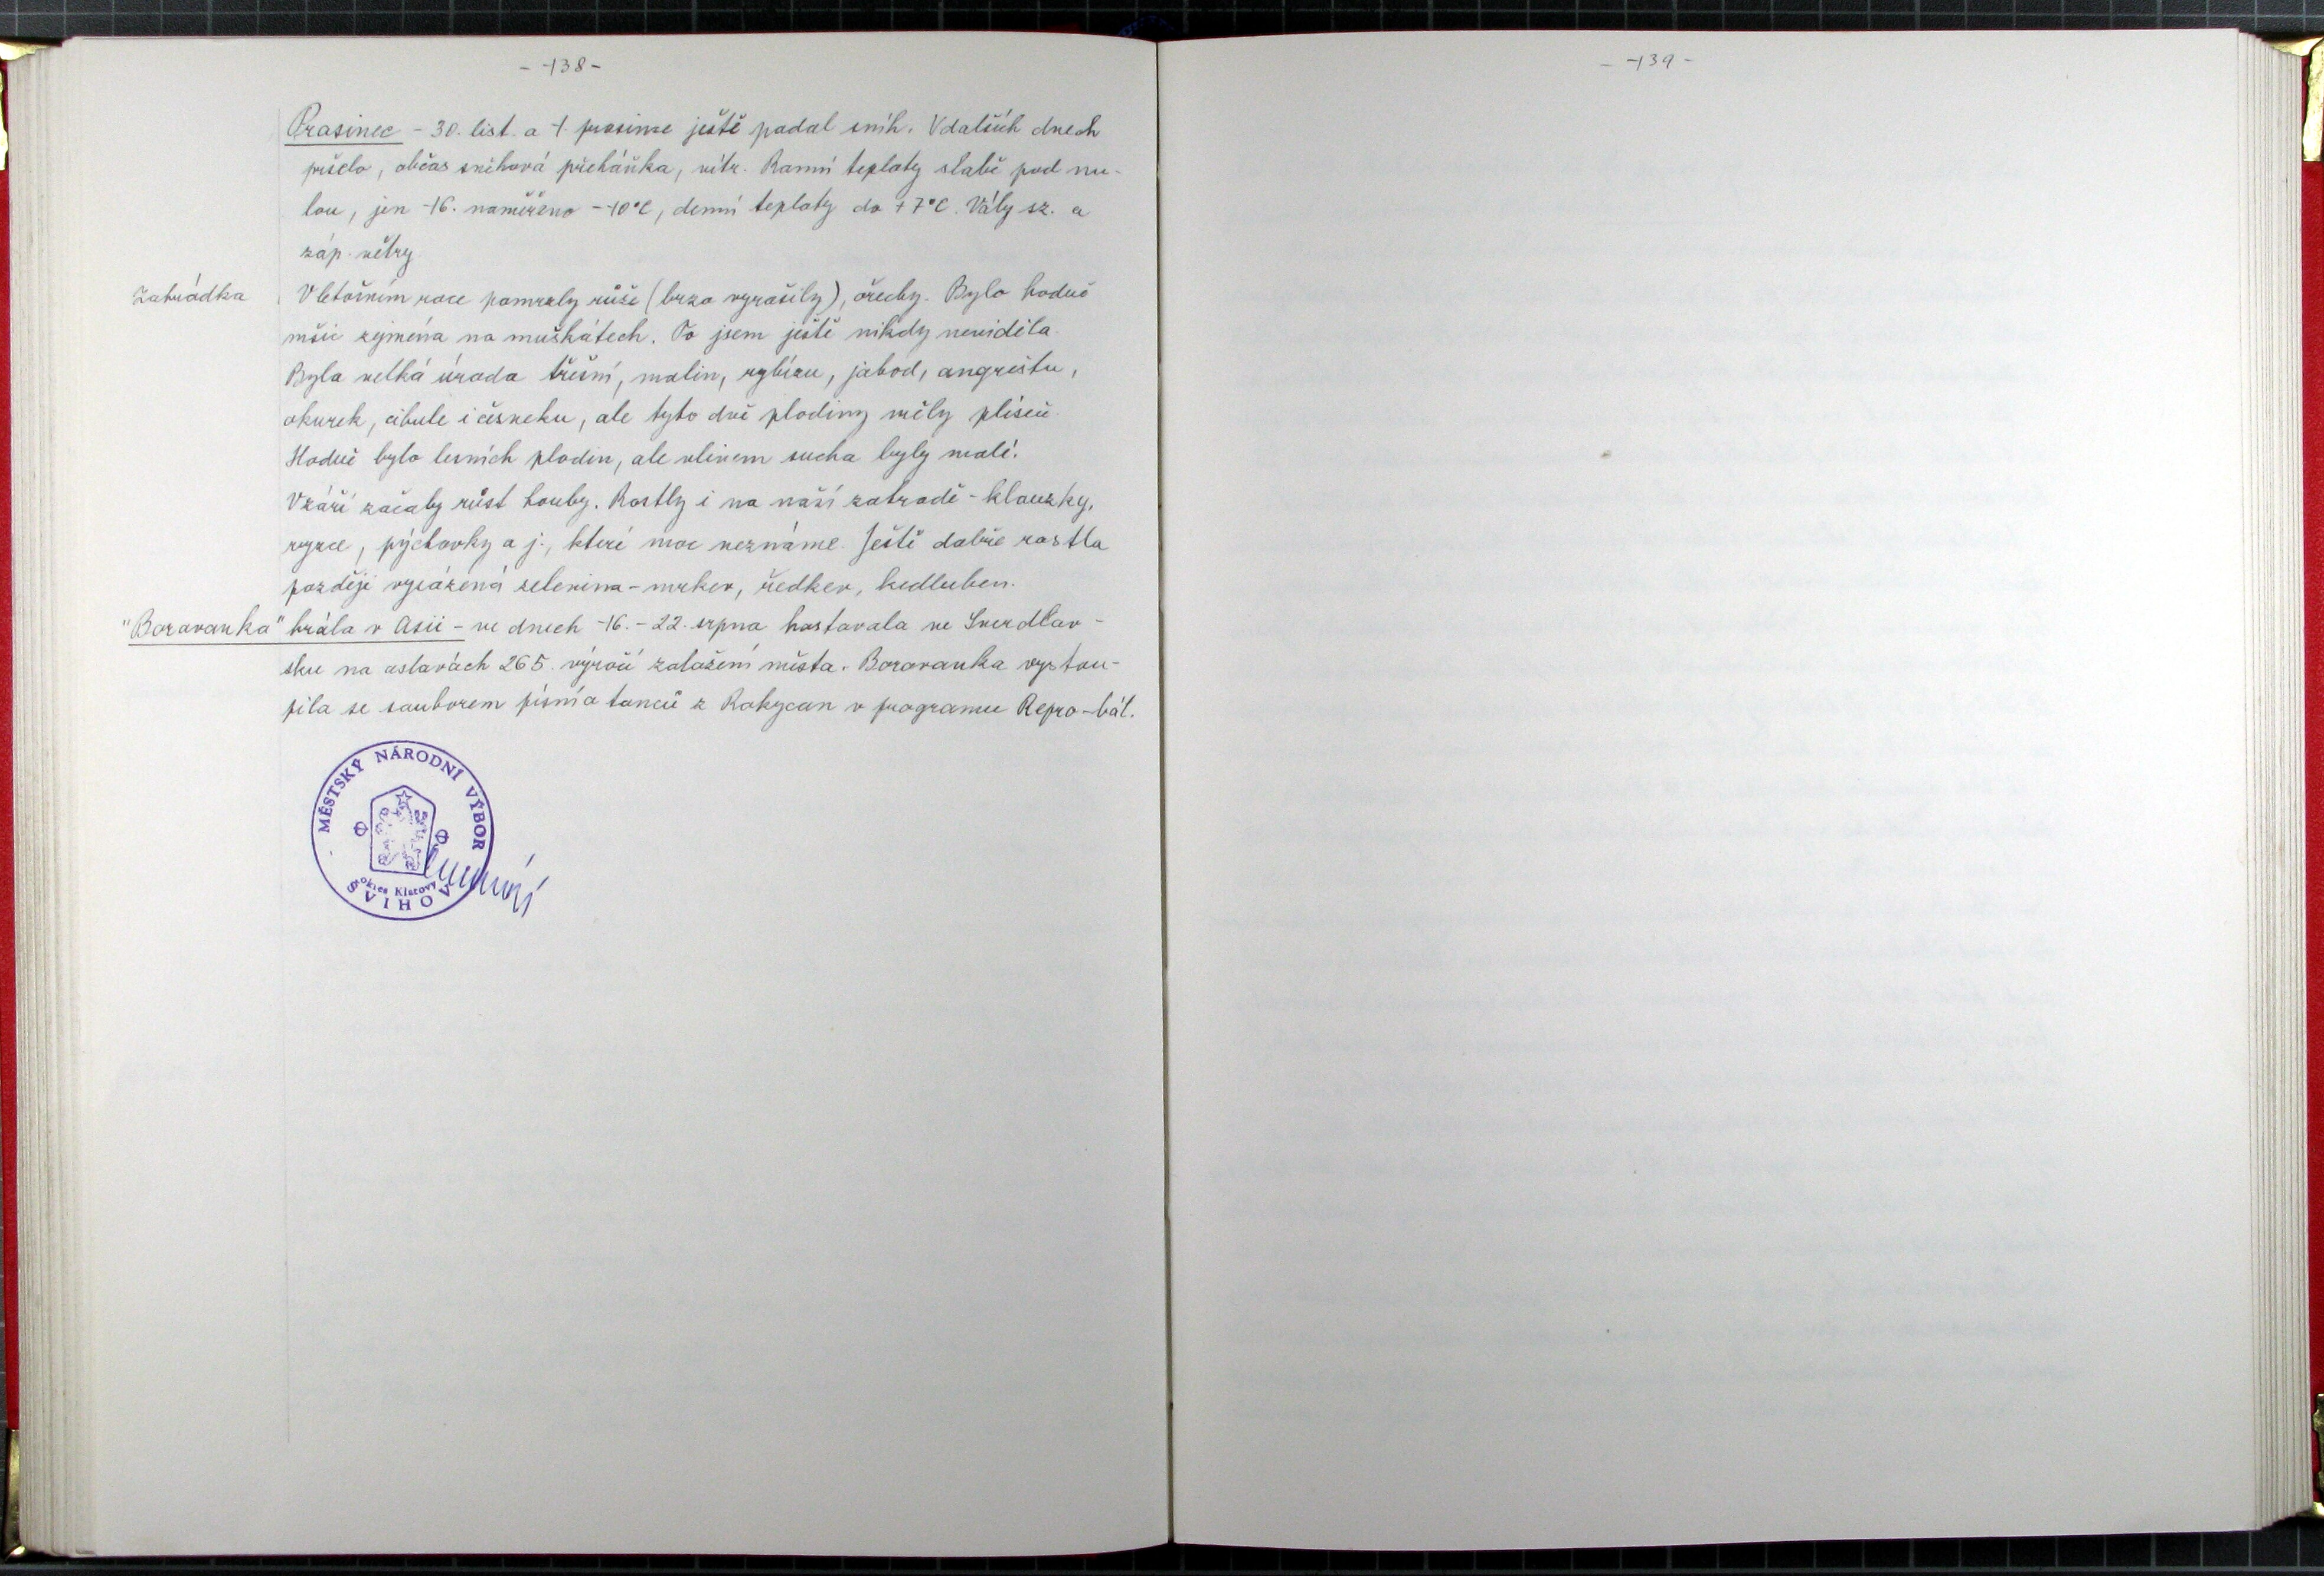 - 138 -
Prosinec - 30. list. a 1. prosince ještě padal sníh. V dalších dnech
pršelo, občas sněhová přeháňka, vítr. Ranní teploty slabě pod nu-
lou, jen 16. naměřeno -10°C, denní teploty do +7°C. Vály sz. a
záp. větry.
Zahrádka
V letošním roce pomrzly růže (brzo vyrašily), ořechy. Bylo hodně
mšic zejména na muškátech. To jsem ještě nikdy neviděla.
Byla velká úroda třešní, malin, rybízu, jahod, angreštu,
okurek, cibule i česneku, ale tyto dvě plodiny měly plíseň.
Hodně bylo lesních plodin, ale vlivem sucha byly malé.
V září začaly růst houby. Rostly i na naší zahradě - klouzky,
ryzce, pýchavky a j., které moc neznáme. Ještě dobře rostla
později vysázená zelenina - mrkev, ředkev, kedluben.
"Boravanka" hrála v Asii - ve dnech 16. - 22. srpna hostovala ve Sverdlov-
sku na oslavách 265. výročí založení města. Boravanka vystou-
pila se souborem písní a tanců z Rokycan v programu Repro-bál.
MĚSTSKÝ NÁRODNÍ VÝBOR
okres Klatovy
ŠVIHOV
- 139 -